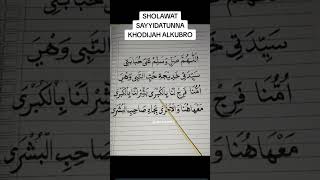 SHOLAWAT
SAYYIDATUNNA
KHODIJAH ALKUBRO
اَللّٰهُمَّ صَلِّ وَسَلِّمْ عَلَى حُبَابَتِى
سَيِّدَتِى خَدِيْجَةَ حُبِّ النَّبِى وَهِىَ
اُمُّنَا فَرِّجْ لَنَا بِالْكُبْرَى بَشِّرْ لَنَا بِالْكُبْرَى
مَعَهَا هُنَا وَالْاُخْرَى بِجَاهِ صَاحِبِ الْبُشْرَى